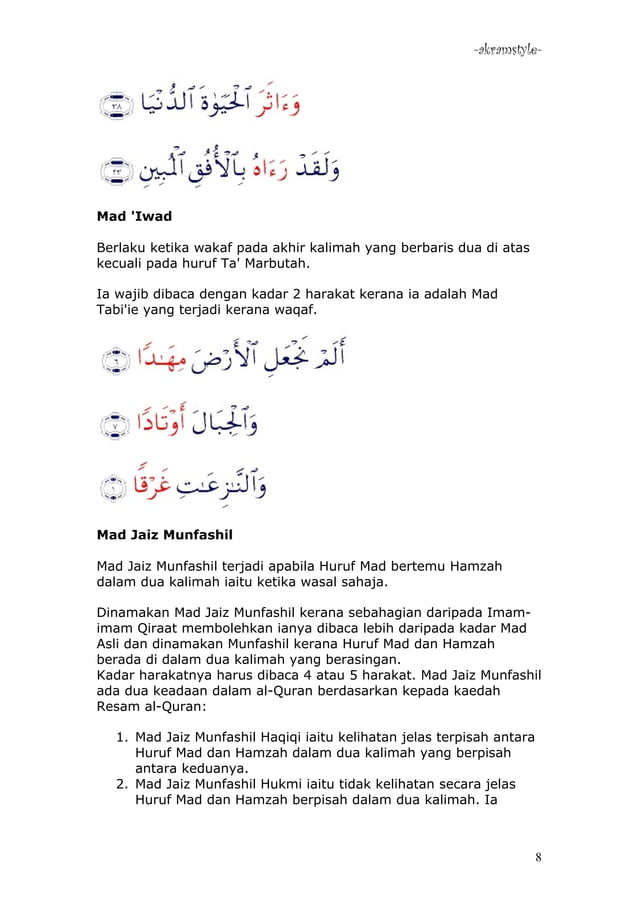 -akramstyle-
وَءَاثَرَ ٱلْحَيَوٰةَ ٱلدُّنْيَا ٣٨
وَلَقَدْ رَءَاهُ بِٱلْأُفُقِ ٱلْمُبِينِ ٢٣
Mad 'Iwad
Berlaku ketika wakaf pada akhir kalimah yang berbaris dua di atas
kecuali pada huruf Ta' Marbutah.
Ia wajib dibaca dengan kadar 2 harakat kerana ia adalah Mad
Tabi'ie yang terjadi kerana waqaf.
أَلَمْ نَجْعَلِ ٱلْأَرْضَ مِهَـٰدًا ٦
وَٱلْجِبَالَ أَوْتَادًا ٧
وَٱلنَّـٰزِعَـٰتِ غَرْقًا ١
Mad Jaiz Munfashil
Mad Jaiz Munfashil terjadi apabila Huruf Mad bertemu Hamzah
dalam dua kalimah iaitu ketika wasal sahaja.
Dinamakan Mad Jaiz Munfashil kerana sebahagian daripada Imam-
imam Qiraat membolehkan ianya dibaca lebih daripada kadar Mad
Asli dan dinamakan Munfashil kerana Huruf Mad dan Hamzah
berada di dalam dua kalimah yang berasingan.
Kadar harakatnya harus dibaca 4 atau 5 harakat. Mad Jaiz Munfashil
ada dua keadaan dalam al-Quran berdasarkan kepada kaedah
Resam al-Quran:
1. Mad Jaiz Munfashil Haqiqi iaitu kelihatan jelas terpisah antara
Huruf Mad dan Hamzah dalam dua kalimah yang berpisah
antara keduanya.
2. Mad Jaiz Munfashil Hukmi iaitu tidak kelihatan secara jelas
Huruf Mad dan Hamzah berpisah dalam dua kalimah. Ia
8